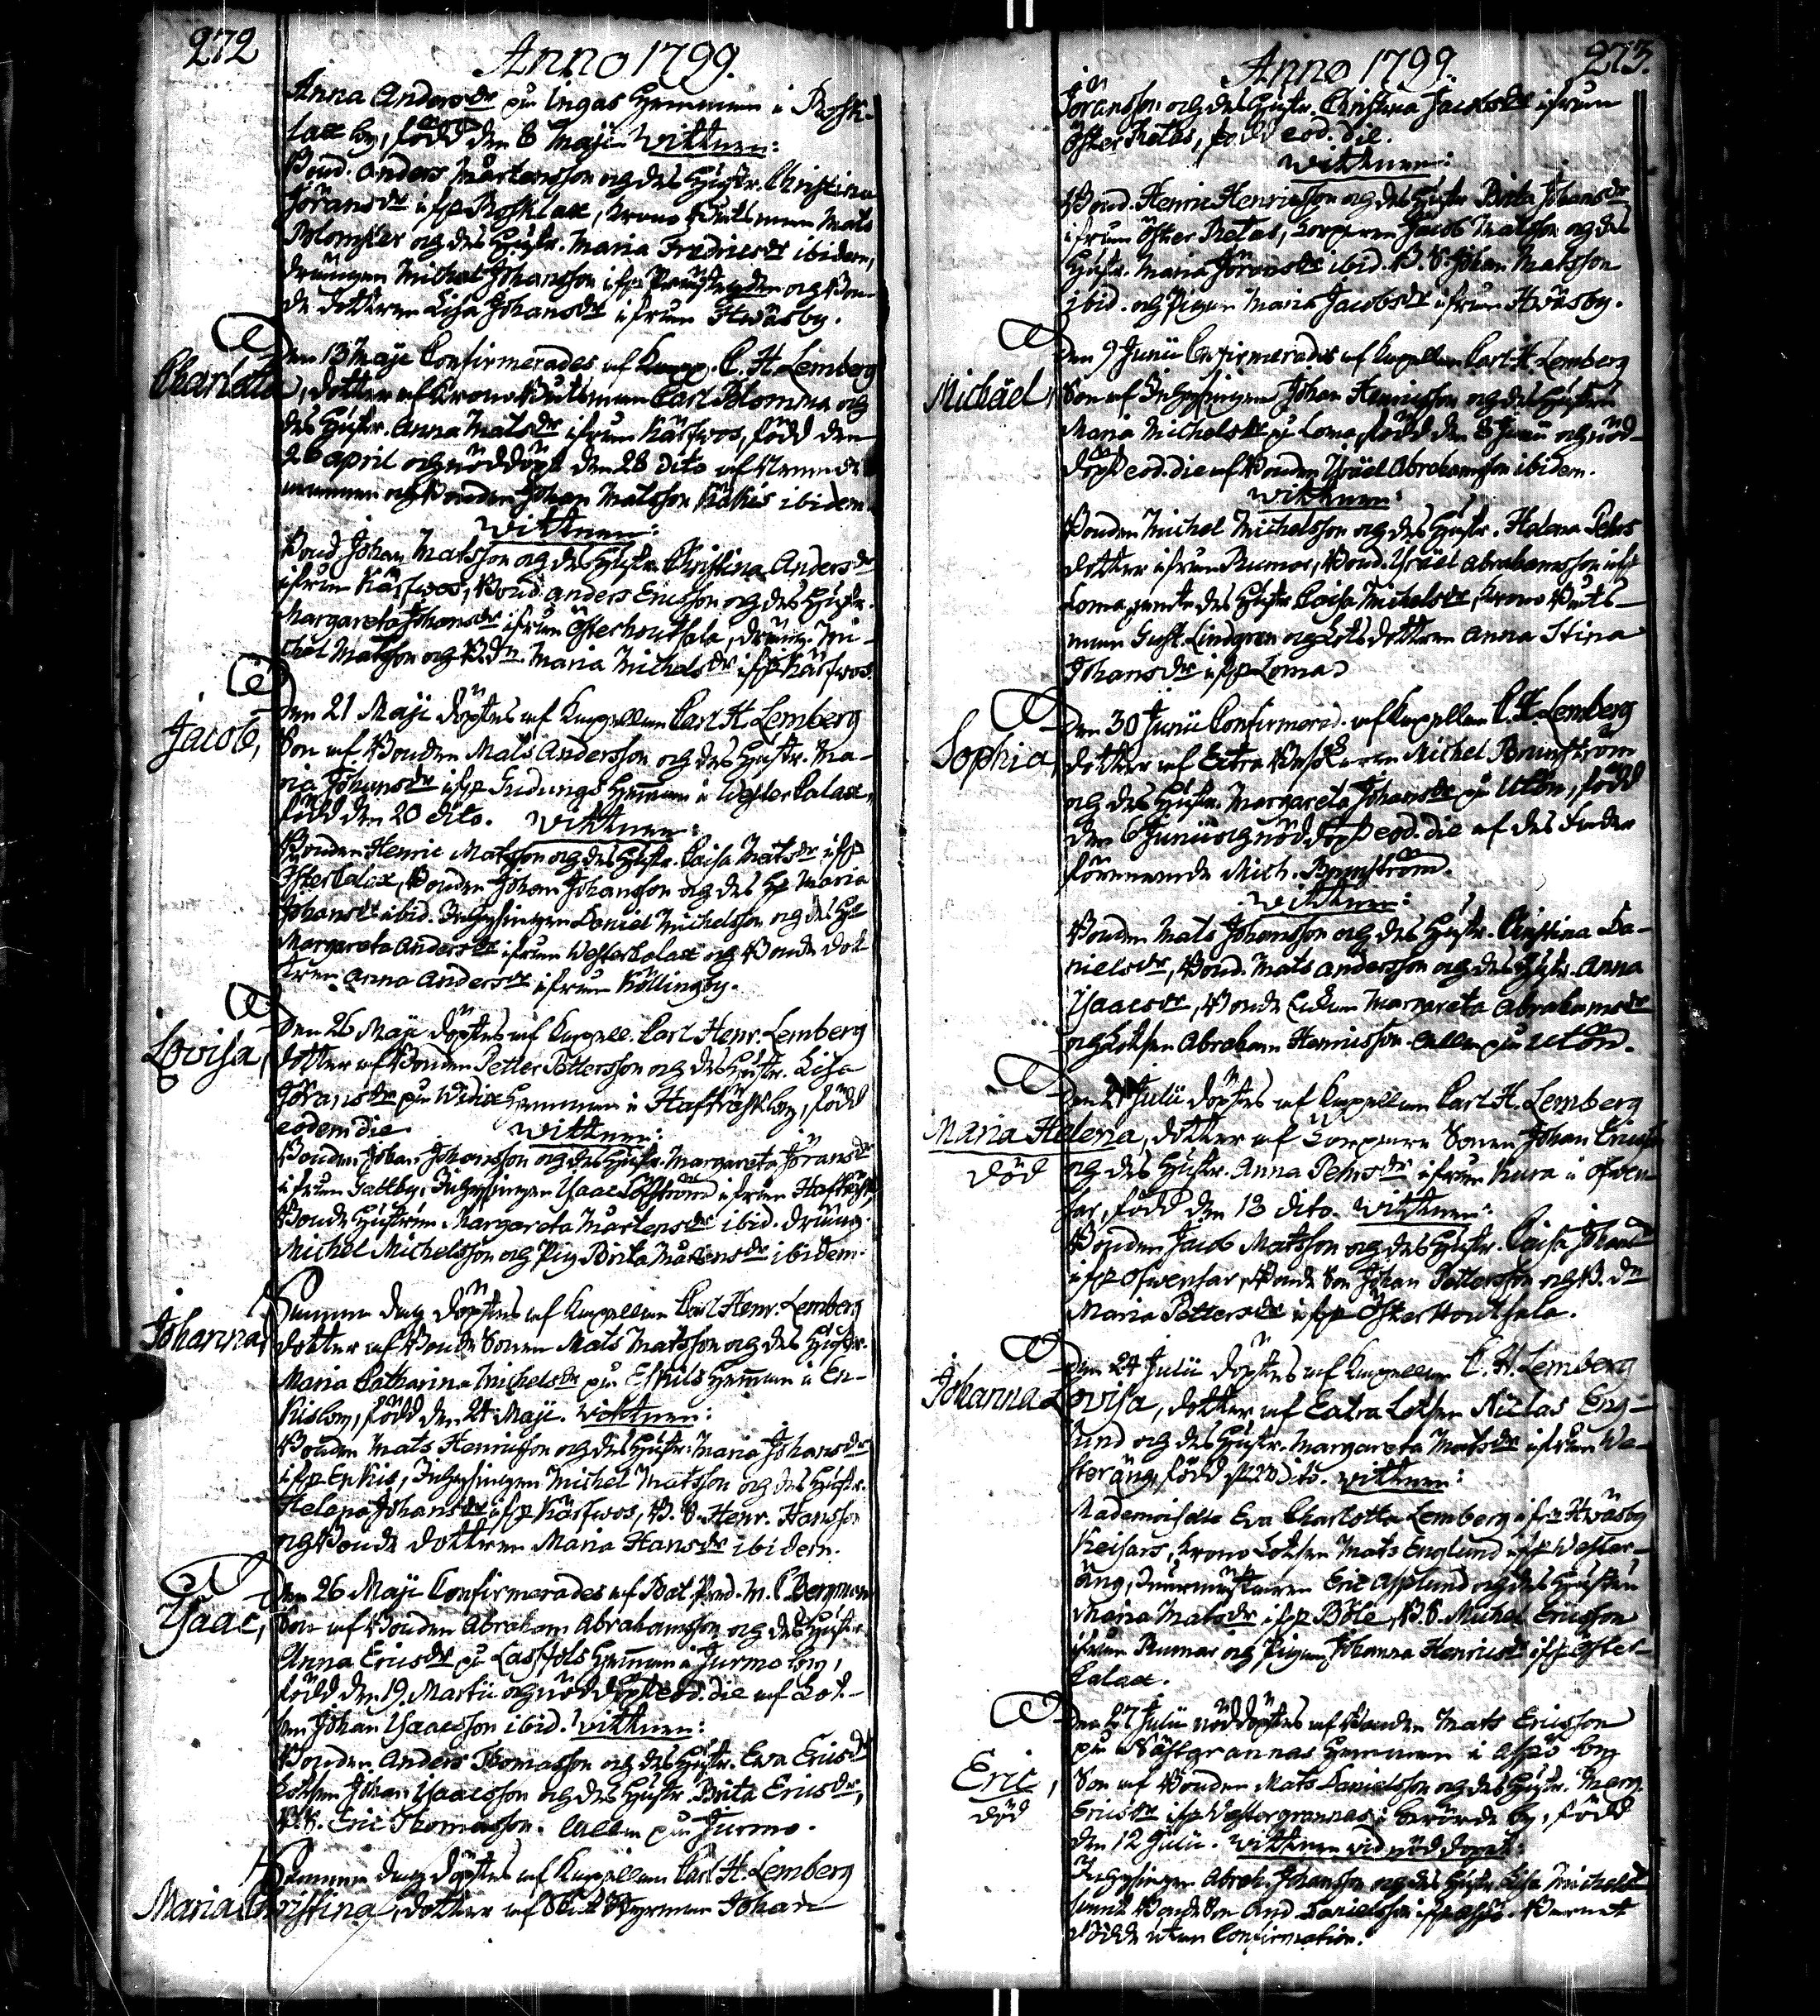 272
Anno 1799.
Anna Andersdr på Ingas Hemman i Rosk-
lax by, född den 8 Maji. Vittnen:
Bond. Anders Mårtensson och des Hustr. Christina
Jöransdr ifr. Rosklax, Krono Båtsman Mats
Blomster och des Hustr. Maria Fredricsdr ibidem,
Drängen Michel Johansson ifr. och Bon-
de dottren Lisa Johansdr ifrån Hwäsby.
Den 13 Maji Confirmerades af Kapp. C. H. Lemberg
Charlotta, dotter af Krono Båtsman Carl Blomma och
des Hustr. Anna Matsdr ifrån Kärfwos, född den
26 april och nöddöpt den 28 dito af
och Bonden Johan Matsson ibidem.
Vittnen:
Bond. Johan Matsson och des Hustr. Christina Andersdr
ifrån Kärfwos, Bond. Anders Ericsson och des Hustr.
Margareta Johansdr ifrån Österhouthala, dräng. Mi-
chel Matsson och B.dn Maria Michelsdr ifr. Kärfwos.
Den 21 Maji döptes af Kapellan Carl H. Lemberg
Jacob,
Son af Bonden Mats Andersson och des Hustr. Ma-
ria Johansdr ifr. Gudings Hemman i Westerkalax,
född den 20 dito. Vittnen:
Bonden Henric Matsson och des Hustr. Caisa Matsdr ifr.
Österkalax, Bonden Johan Johansson och des H. Maria
Johansdr ibid. Inhysingen Daniel Michelsson och des H.
Margareta Andersdr ifrån Westerkalax och Bonde dot-
tren Anna Andersdr ifrån Källingby.
Den 26 Maji döptes af Kapell. Carl Henr. Lemberg
Lovisa,
dotter af Bonden Petter Pettersson och des Hustr. Lisa
Jöransdr på Widix Hemman i Hafträsk by, född
eodem die. Vittnen:
Bonden Johan Johansson och des Hustr. Margareta Jöransdr
ifrån Gattby, Inhysingen Isaac Löfström ifrån Hafträsk,
Bonde Hustrun Margareta Mårtensdr ibid. dräng.
Michel Michelsson och Pig. Brita Mårtensdr ibidem.
Samma dag döptes af Kapellan Carl Henr. Lemberg
Johanna,
dotter af Bonde Sonen Mats Matsson och des Hustr.
Maria Catharina Michelsdr på Eskils Hemman i En-
kis by, född den 24 Maji. Vittnen:
Bonden Mats Henricsson och des Hustr. Maria Johansdr
ifr. Enkis, Inhysingen Michel Matsson och des Hustr.
Helena Johansdr ifr. Kärfwos, B. S. Henr. Hansson
och Bonde dottren Maria Hansdr ibidem.
Den 26 Maji Confirmerades af Bat. Pred. M. C. Bergman
Isaac,
Son af Bonden Abraham Abrahamsson och des Hustr.
Anna Ericsdr på Lasstols Hemman i Jurmo by,
född den 19 Martii och nöddöpt eod. die af Lot-
sen Johan Isaacsson ibid. Vittnen:
Bonden Anders Thomasson och des Hustr. Eva Ericsdr
Lotsen Johan Isaacsson och des Hustr. Brita Ericsdr,
B.S. Eric Thomasson. alla på Jurmo.
Samma dag döptes af Kapellan Carl H. Lemberg
Maria Christina, dotter af Skut Styrman Johan
273.
Anno 1799.
Jöransson och des Hustr. Christina Jacobsdr ifrån
Öster Retais, född eod. die.
Vittnen:
Bond. Henric Henricsson och des Hustr. Brita Johansdr
ifrån Öster Retais, Korpor. Jacob Matsson och des
Hustr. Maria Jöransdr ibid. B. S. Johan Matsson
ibid. och Pigan Maria Jacobsdr ifrån Hwäsby.
Den 9 Junii Confirmerades af Kapellan Carl H. Lemberg
Michäel,
Son af Inhysingen Johan Henricsson och des Hustru
Maria Michelsdr på Loma, född den 8 Junii och nöd-
döpt eod. die af Bonden Israel Abrahamsson ibidem.
Vittnen:
Bonden Michel Michelsson och des Hustr. Helena Pehrs
dotter ifrån Rumar, Bond. Israel Abrahamsson ifr.
Loma samt des Hustr. Caisa Michelsdr, Krono Båts-
man Gust. Lindgren och Lots dottren Anna Stina
Johansdr ifr. Loma.
Den 30 Junii Confirmerad. af Kapellan C. H. Lemberg
Sophia,
dotter af Extra Michel Brunström
och des Hustr. Margareta Johansdr på Utön, född
den 6 Junii och nöddöpt eod. die af des Fader
förenämde Mich. Brunström.
Vittnen:
Bonden Mats Johansson och des Hustr. Christina Da-
nielsdr, Bond. Mats Andersson och des Hustr. Anna
Isaacsdr, Bonde Enkan Margareta Abrahamsdr
och Lotsen Abraham Henricsson alla på Utön.
Den 21 Julii döptes af Kapellan Carl H. Lemberg
Maria Helena, dotter af Sonen Johan Ericsson
död
och des Hustr. Anna Pehrsdr ifrån Kura i Ofwen-
far, född den 13 dito. Vittnen:
Bonden Jacob Matsson och des Hustr. Caisa Johansdr
ifr. Ofwenfar, Bonde Son Johan Pettersson och B. dn
Maria Pettersdr ifr. Österhouthala.
Den 24 Julii döptes af Kapellan C. H. Lemberg
Johanna Lovisa, dotter af Extra Lotsen Niclas Eng-
lund och des Hustr. Margareta Matsdr ifrån We-
steräng, född d. 23 dito. Vittnen:
Mademoiselle Eva Charlotta Lemberg ifrn Hwäsby
Keisars, Krono Lotsen Mats Englund ifr. Wester-
äng, Murmästaren Eric Asplund och des Hustru
Maria Matsdr ifr. Böle, B.S. Michel Ericsson
ifrån Rumar och Pigan Johanna Henricsdr ifr. Öster-
kalax.
Den 27 Julii nöddöptes af Bonden Mats Ericsson
på Nästgrannas Hemman i Aspö by
Eric,
död
Son af Bonden Mats Danielsson och des Hustr. Marg.
Ericsdr ifr. Westergrannas i berörde by, född
den 12 Julii. Vittnen vid nöd dopet:
Inhysingen Abrah. Johansson och des Hustr. Lisa Michelsdr
samt Bonde Son And. Danielsson ifr. Aspö. Barnet
dödde utan Confirmation.